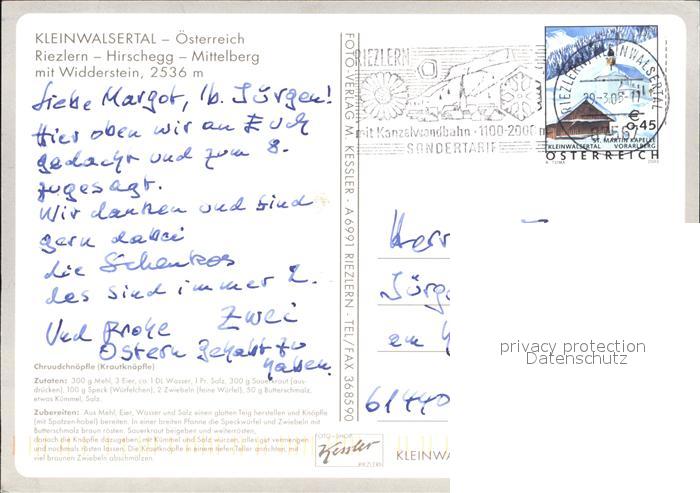 KLEINWALSERTAL – Österreich
Riezlern – Hirschegg – Mittelberg
mit Widderstein, 2536 m
Liebe Margot, lb. Jürgen!
Hier oben wir an Euch
gedacht und zum 8.
zugesagt.
Wir danken und sind
gern dabei
die Schenkos
des sind immer 2.
Zwei
Und Frohe
Ostern gehabt zu
haben.
Chruudchnöpfle (Krautknöpfle)
Zutaten: 300 g Mehl, 3 Eier, ca. 1 DL Wasser, 1 Pr. Salz, 300 g Sauerkraut (aus-
drücken), 100 g Speck (Würfelchen), 2 Zwiebeln (feine Würfel), 50 g Butterschmalz,
etwas Kümmel, Salz.
Zubereiten: Aus Mehl, Eier, Wasser und Salz einen glatten Teig herstellen und Knöpfle
(mit Spatzen-hobel) bereiten. In einer breiten Pfanne die Speckwürfel und Zwiebeln mit
Butterschmalz braun rösten. Sauerkraut beigeben und weiterrösten,
danach die Knöpfle dazugeben, mit Kümmel und Salz würzen, alles gut vermengen
und nochmals rösten lassen. Die Krautknöpfle in einem tiefen Teller anrichten, mit
viel braunen Zwiebeln abschmälzen.
FOTO-VERLAG M. KESSLER - A 6991 RIEZLERN - TEL/FAX 36859
FOTO-SHOP
Kessler
RIEZLERN
RIEZLERN
mit Kanzelwandbahn · 1100-2000 m
SONDERTARIF
RIEZLERN/KLEINWALSERTAL
29-3.05-17
€ 0,45
ST. MARTIN KAPELLE
KLEINWALSERTAL VORARLBERG
ÖSTERREICH
Herr
Jürg
am
61440
privacy protection
Datenschutz
KLEINWA